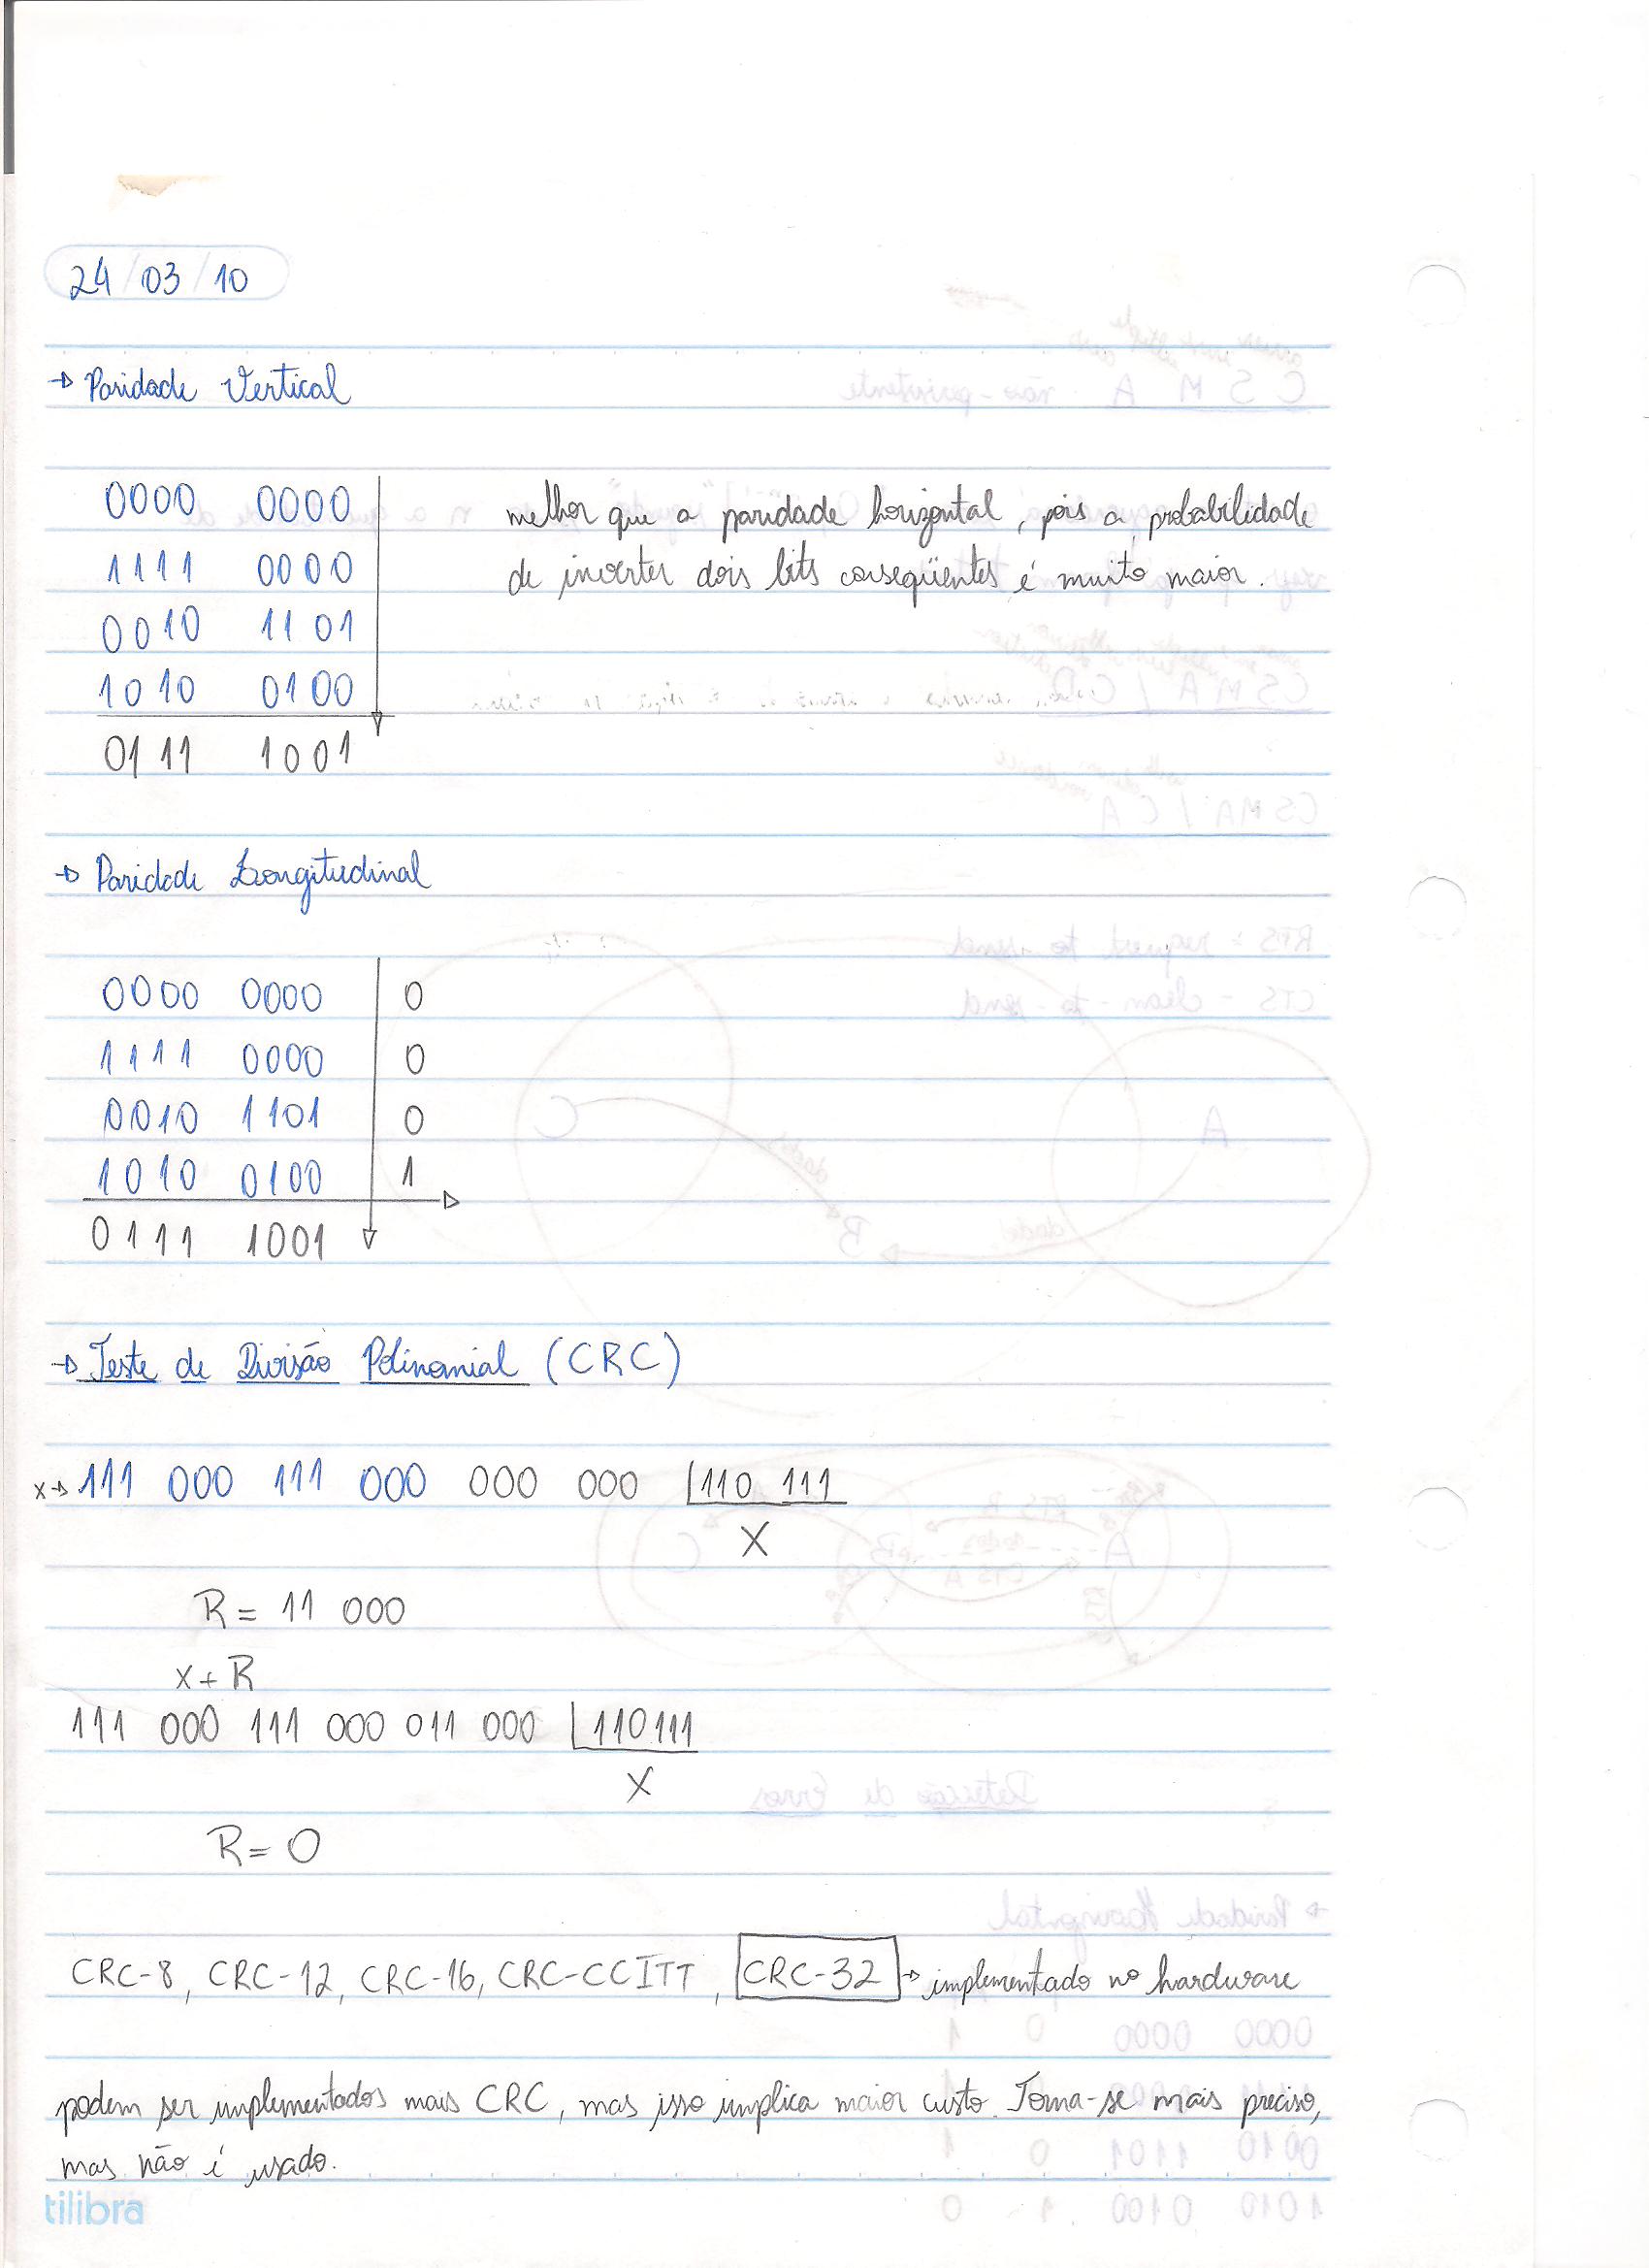 24/03/10
→ Paridade Vertical
0000 0000
1111 0000
0010 1101
1010 0100
0111 1001
melhor que a paridade horizontal, pois a probabilidade
de inverter dois bits conseqüentes é muito maior.
→ Paridade Longitudinal
0000 0000 0
1111 0000 0
0010 1101 0
1010 0100 1
0111 1001
→ Teste de Divisão Polinomial (CRC)
x→ 111 000 111 000 000 000 110 111
X
R = 11 000
x + R
111 000 111 000 011 000 110111
X
R = 0
CRC-8, CRC-12, CRC-16, CRC-CCITT, CRC-32 → implementado no hardware
podem ser implementados mais CRC, mas isso implica maior custo. Torna-se mais preciso,
mas não é usado.
tilibra